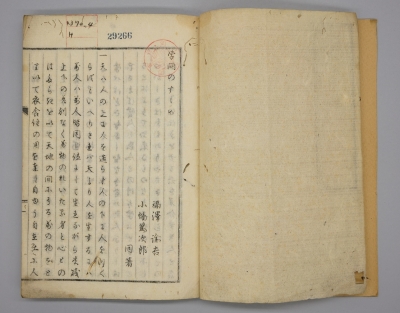 29266
学問のすゝめ
福澤諭吉
小幡篤次郎
同著
一天ハ人の上に人を造らず人の下に人を造
らずといへりされば天より人を生ずるにハ
萬人ハ萬人皆同じ位にして生れながら貴賤
上下の差別なく萬物の霊たる身と心との
働を以て天地の間にあるよろづの物を資
り以て衣食住の用を達し自由自在互に人